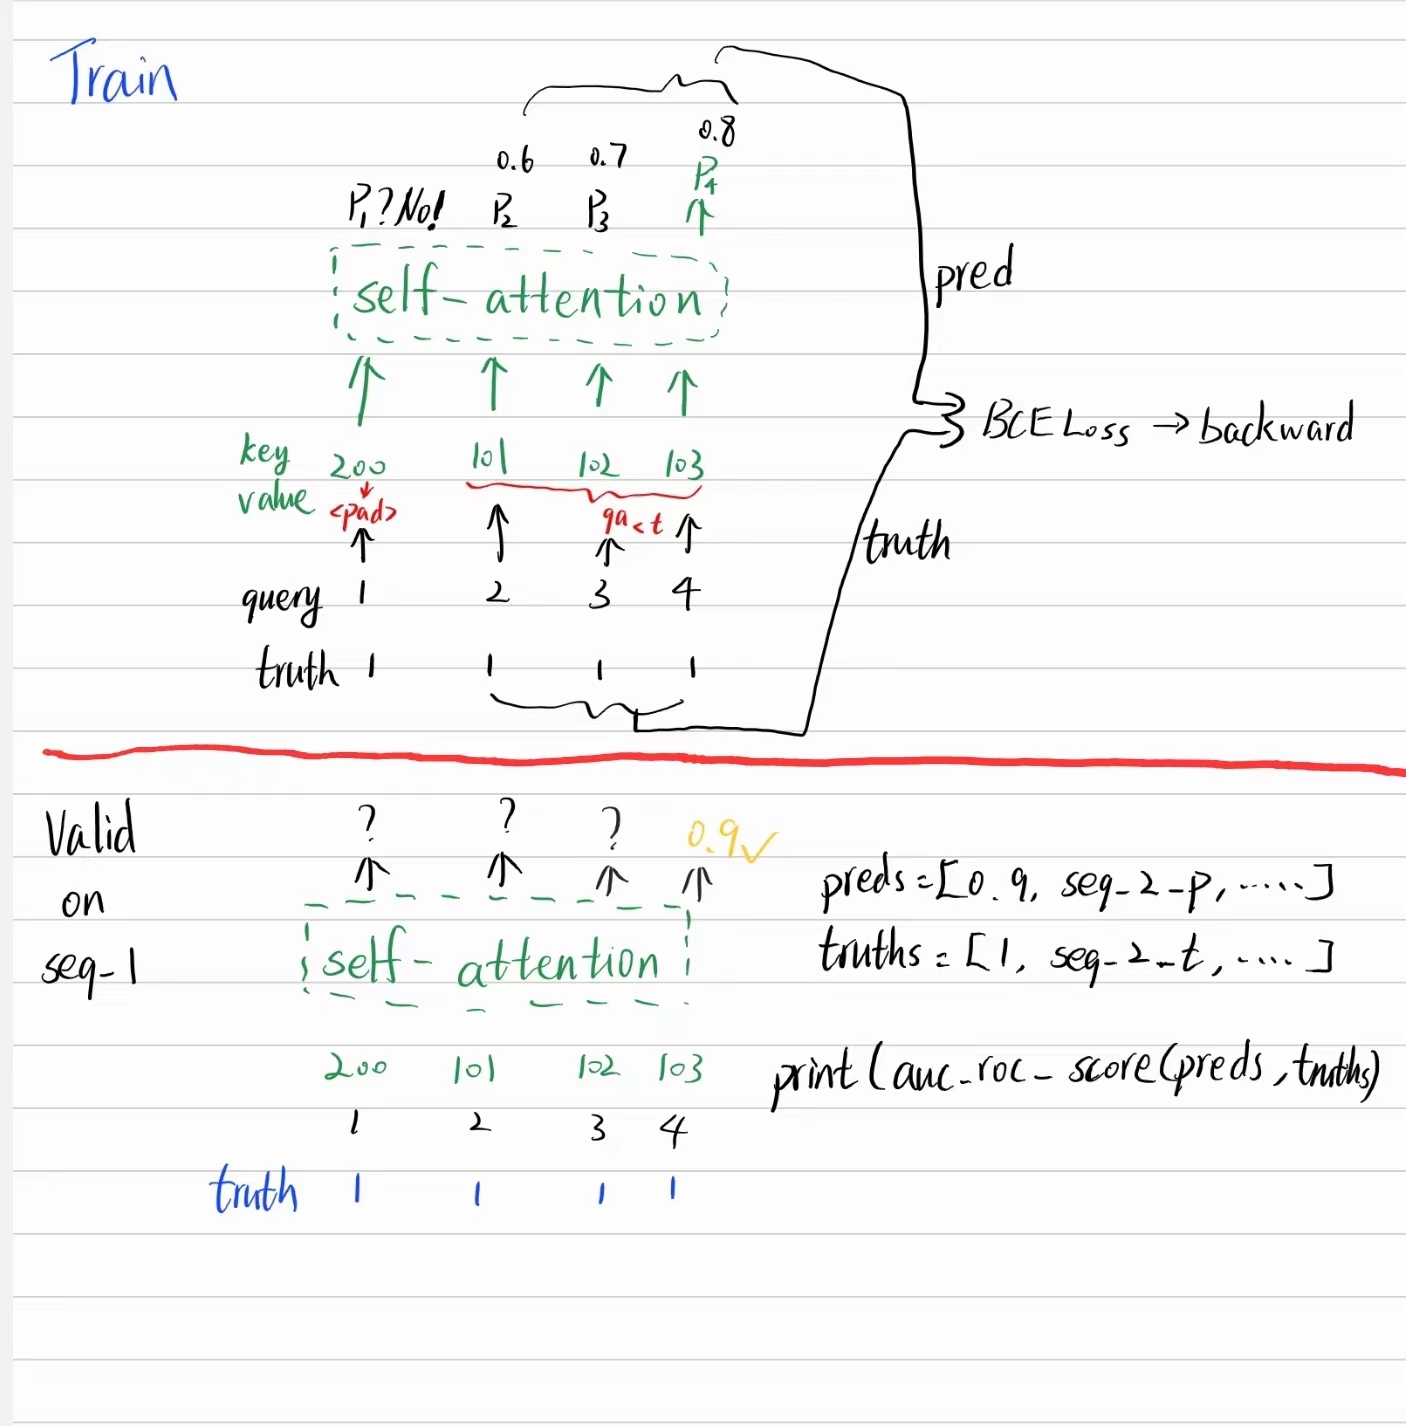 Train
0.8
0.6 0.7
P4
P1? No! P2 P3
self-attention
pred
BCE Loss → backward
key 200 101 102 103
value <pad> qa<t
truth
query 1 2 3 4
truth 1 1 1 1
Valid ? ? ? 0.9✓
on
seq-1
self-attention
preds=[0.9, seq-2-p, ·····]
truths=[1, seq-2-t, ····]
200 101 102 103
print(auc-roc-score(preds, truths)
1 2 3 4
truth 1 1 1 1